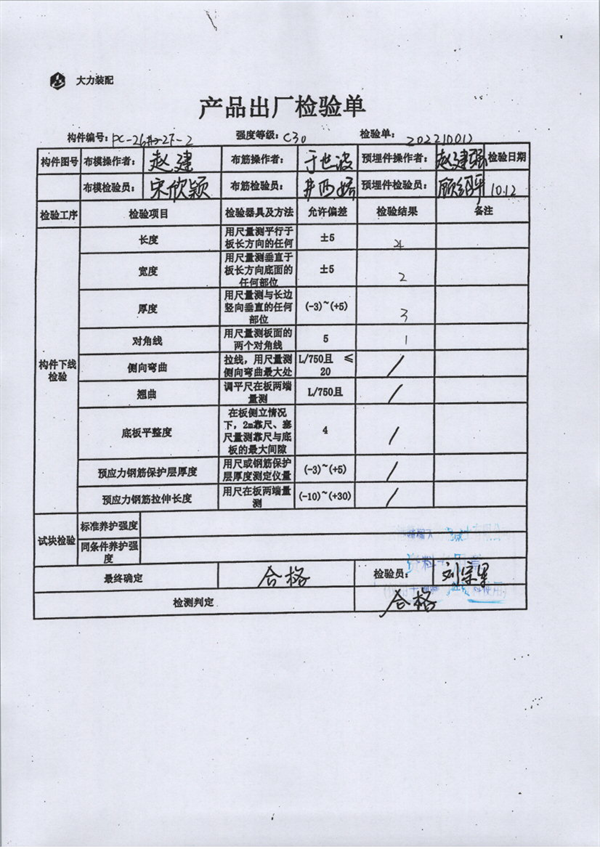 大力装配
产品出厂检验单
构件编号: 强度等级: C30 检验单: 20221001
构件图号 布模操作者: 赵建 布筋操作者: 于世波 预埋件操作者: 赵建强 检验日期
布模检验员: 宋欣颖 布筋检验员: 预埋件检验员: 10.12
检验工序 检验项目 检验器具及方法 允许偏差 检验结果 备注
构件下线检验
长度 用尺量测平行于板长方向的任何 ±5 4
宽度 用尺量测垂直于板长方向底面的任何部位 ±5 2
厚度 用尺量测与长边竖向垂直的任何部位 (-3)~(+5) 3
对角线 用尺量测板面的两个对角线 5 1
侧向弯曲 拉线，用尺量测侧向弯曲最大处 L/750且 ≤20 /
翘曲 调平尺在板两端量测 L/750且 /
底板平整度 在板侧立情况下，2m靠尺、塞尺量测靠尺与底板的最大间隙 4 /
预应力钢筋保护层厚度 用尺或钢筋保护层厚度测定仪量 (-3)~(+5) /
预应力钢筋拉伸长度 用尺在板两端量测 (-10)~(+30) /
试块检验 标准养护强度
同条件养护强度
最终确定 合格 检验员:
检测判定 合格